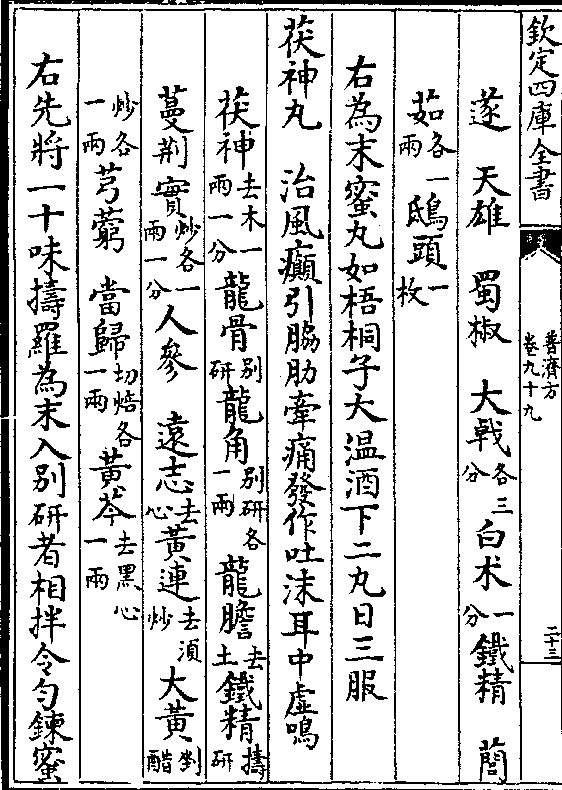 欽定四庫全書
普濟方
卷九十九
二十三
遂　天雄　蜀椒　大戟各三分白术一分鐵精　䕡
茹各一兩鴟頭一枚
右為末蜜丸如梧桐子大温酒下二丸日三服
茯神丸　治風癲引脇肋牽痛發作吐沫耳中虚鳴
茯神去木一兩一分龍骨别研龍角别研各一兩龍膽去土鐵精擣研
蔓荆實炒各一兩一分人參　遠志去心黄連去湏炒大黄剉醋
炒各一兩芎藭　當歸切焙各一兩黄芩去黑心一兩
右先將一十味擣羅為末入别研者相拌令勻鍊蜜